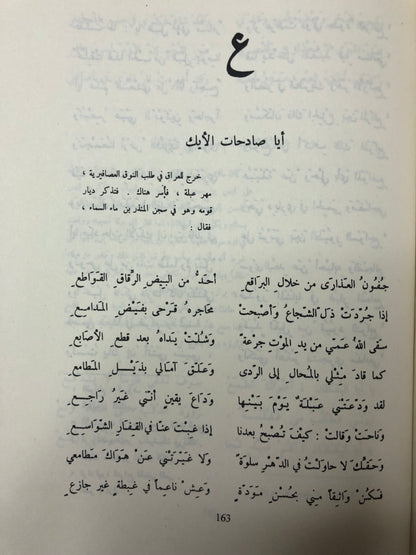 ع
أيا صادحات الأيك
خرج للعراق في طلب النوق العصافيرية ،
مهر عبلة ، فأسر هناك . فتذكر ديار
قومه وهو في سجن المنذر بن ماء السماء ،
فقال :
جُفُونُ العَذَارَى مِن خلالِ البراقعِ أحَدُّ من البيضِ الرِّقاقِ القَواطعِ
إذا جُرِّدَتْ ذلَّ الشُّجاعُ وأصْبحتْ محاجِرُهُ قَرْحى بفَيْضِ المَدامعِ
سقى اللهُ عمِّي من يدِ الموتِ جرعةً وشُلَّتْ يداهُ بعد قطعِ الأصابعِ
كما قادَ مثْلي بالمُحالِ إلى الرَّدى وعلّقَ آمالي بذَيْلِ المَطامعِ
لقد ودَّعَتْني عبْلَةٌ يَوْمَ بَيْنِها وداعَ يقينٍ أنَّني غَيْرُ راجعِ
وناحَتْ وقالت : كيفَ تُصْبحُ بعدنا إذا غِبْتَ عنَّا في القِفارِ الشَّواسعِ
وحقِّكَ لا حاولتُ في الدَّهرِ سلوةً ولا غيَّرَتْني عَنْ هَواكَ مَطامعي
فكُنْ واثقاً منِّي بحُسْنِ مَوَدَّةٍ وعِشْ ناعماً في غبطةٍ غير جازعِ
163